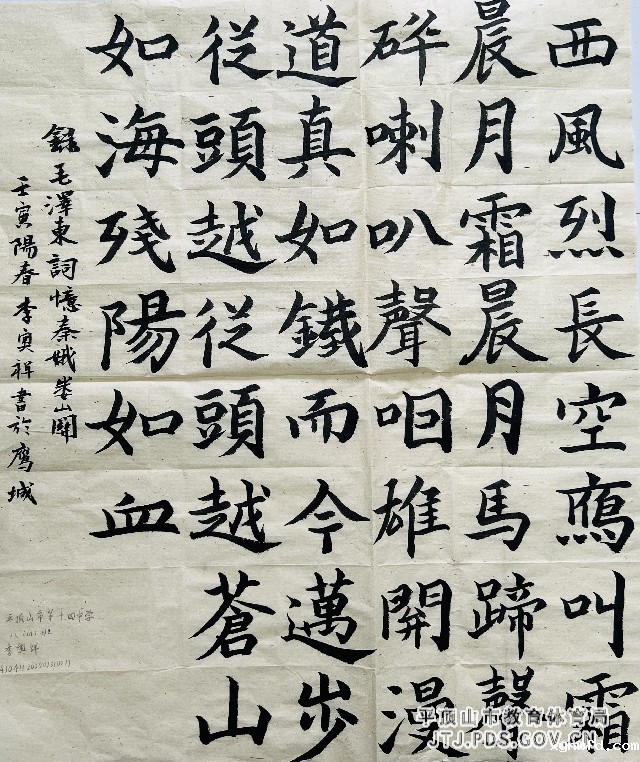 西風烈長空鴈叫霜
晨月霜晨月馬蹄聲
砕喇叭聲咽雄関漫
道真如鐵而今邁步
從頭越從頭越蒼山
如海残陽如血
錄毛澤東詞憶秦娥娄山関
壬寅陽春李寅祥書於鷹城
平顶山市第十四中学
平顶山市教育体育局
JTJ.PDS.GOV.CN